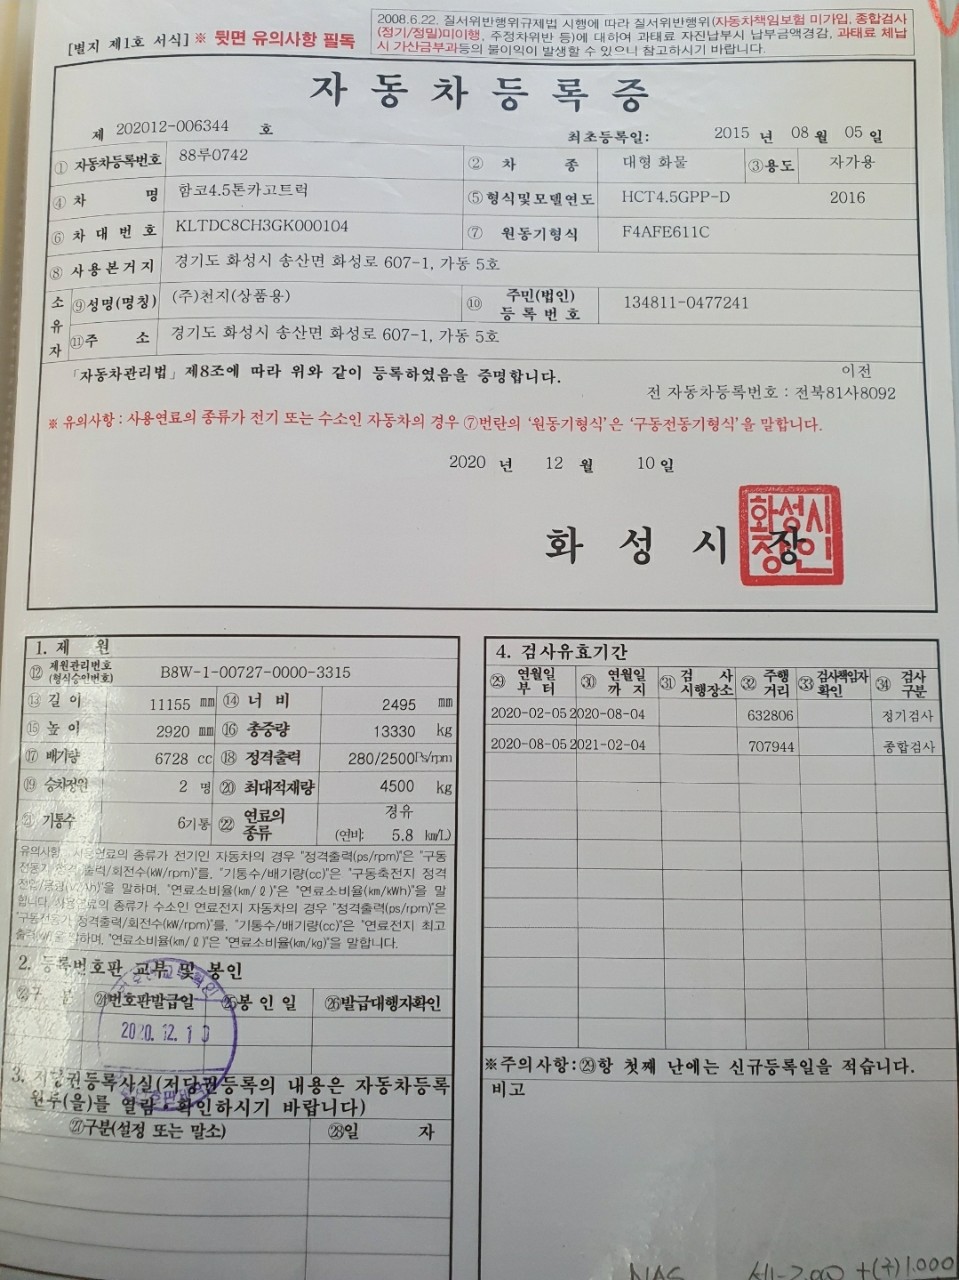 2008.6.22. 질서위반행위규제법 시행에 따라 질서위반행위(자동차책임보험 미가입, 종합검사
(정기/정밀)미이행, 주정차위반 등)에 대하여 과태료 자진납부시 납부금액경감, 과태료 체납
시 가산금부과등의 불이익이 발생할 수 있으니 참고하시기 바랍니다.
[별지 제1호 서식] ※ 뒷면 유의사항 필독
자동차등록증
제 202012-006344 호 최초등록일: 2015 년 08 월 05 일
① 자동차등록번호 88루0742 ② 차 종 대형 화물 ③용도 자가용
④ 차 명 함코4.5톤카고트럭 ⑤ 형식및모델연도 HCT4.5GPP-D 2016
⑥ 차대번호 KLTDC8CH3GK000104 ⑦ 원동기형식 F4AFE611C
⑧ 사용본거지 경기도 화성시 송산면 화성로 607-1, 가동 5호
소유자 ⑨성명(명칭) (주)천지(상품용) ⑩ 주민(법인)등록번호 134811-0477241
⑪주 소 경기도 화성시 송산면 화성로 607-1, 가동 5호
「자동차관리법」 제8조에 따라 위와 같이 등록하였음을 증명합니다. 이전
전 자동차등록번호 : 전북81사8092
※ 유의사항 : 사용연료의 종류가 전기 또는 수소인 자동차의 경우 ⑦번란의 '원동기형식'은 '구동전동기형식'을 말합니다.
2020 년 12 월 10 일
화성시장
화성시장인
1. 제 원
⑫ 제원관리번호(형식승인번호) B8W-1-00727-0000-3315
⑬ 길이 11155 mm ⑭ 너비 2495 mm
⑮ 높이 2920 mm ⑯ 총중량 13330 kg
⑰ 배기량 6728 cc ⑱ 정격출력 280/2500 Ps/rpm
⑲ 승차정원 2 명 ⑳ 최대적재량 4500 kg
㉑ 기통수 6기통 ㉒ 연료의 종류 경유
(연비: 5.8 km/L)
유의사항 : 사용연료의 종류가 전기인 자동차의 경우 "정격출력(ps/rpm)"은 "구동
출력/회전수(kW/rpm)"를, "기통수/배기량(cc)"은 "구동축전지 정격
을 말하며, "연료소비율(km/ℓ)"은 "연료소비율(km/kWh)"을 말
합니다. 사용연료의 종류가 수소인 연료전지 자동차의 경우 "정격출력(ps/rpm)"은
"구동전동기 정격출력/회전수(kW/rpm)"를, "기통수/배기량(cc)"은 "연료전지 최고
출력(kW)을 말하며, "연료소비율(km/ℓ)"은 "연료소비율(km/kg)"을 말합니다.
2. 등록번호판 교부 및 봉인
㉓구 분 ㉔번호판발급일 ㉕봉인일 ㉖발급대행자확인
2020. 12. 10
3. 저당권등록사실(저당권등록의 내용은 자동차등록
원부(을)를 열람·확인하시기 바랍니다)
㉗구분(설정 또는 말소) ㉘일 자
4. 검사유효기간
㉙ 연월일부터 ㉚ 연월일까지 ㉛ 검사시행장소 ㉜ 주행거리 ㉝ 검사책임자확인 ㉞ 검사구분
2020-02-05 2020-08-04 632806 정기검사
2020-08-05 2021-02-04 707944 종합검사
※주의사항:㉙항 첫째 난에는 신규등록일을 적습니다.
비고